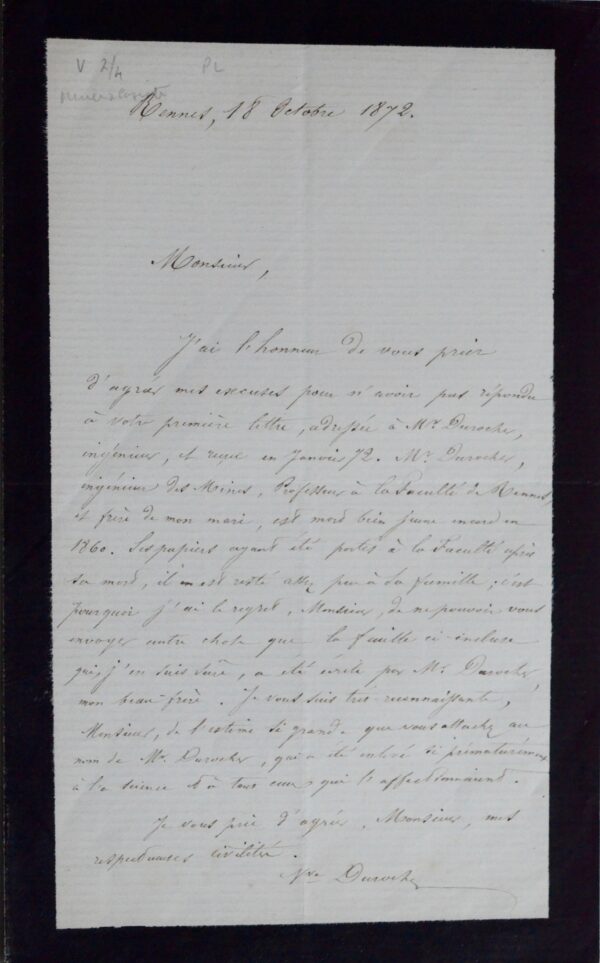 V 2/4 PL
Rennes, 18 Octobre 1872.
Monsieur,
J'ai l'honneur de vous prier
d'agréer mes excuses pour n'avoir pas répondu
à votre première lettre, adressée à Mr. Durocher,
ingénieur, et reçue en Janvier 72. Mr. Durocher,
ingénieur des Mines, Professeur à la Faculté de Rennes,
et frère de mon mari, est mort bien jeune encore en
1860. Ses papiers ayant été portés à la Faculté après
sa mort, il en est resté assez peu à sa famille ; c'est
pourquoi j'ai le regret, Monsieur, de ne pouvoir vous
envoyer autre chose que la feuille ci-incluse
qui, j'en suis sûre, a été écrite par Mr. Durocher,
mon beau-frère. Je vous suis très reconnaissante,
Monsieur, de l'estime si grande que vous attachez au
nom de Mr. Durocher, qui a été enlevé si prématurément
à la science et à tous ceux qui l'affectionnaient.
Je vous prie d'agréer, Monsieur, mes
respectueuses civilités.
Vve Durocher